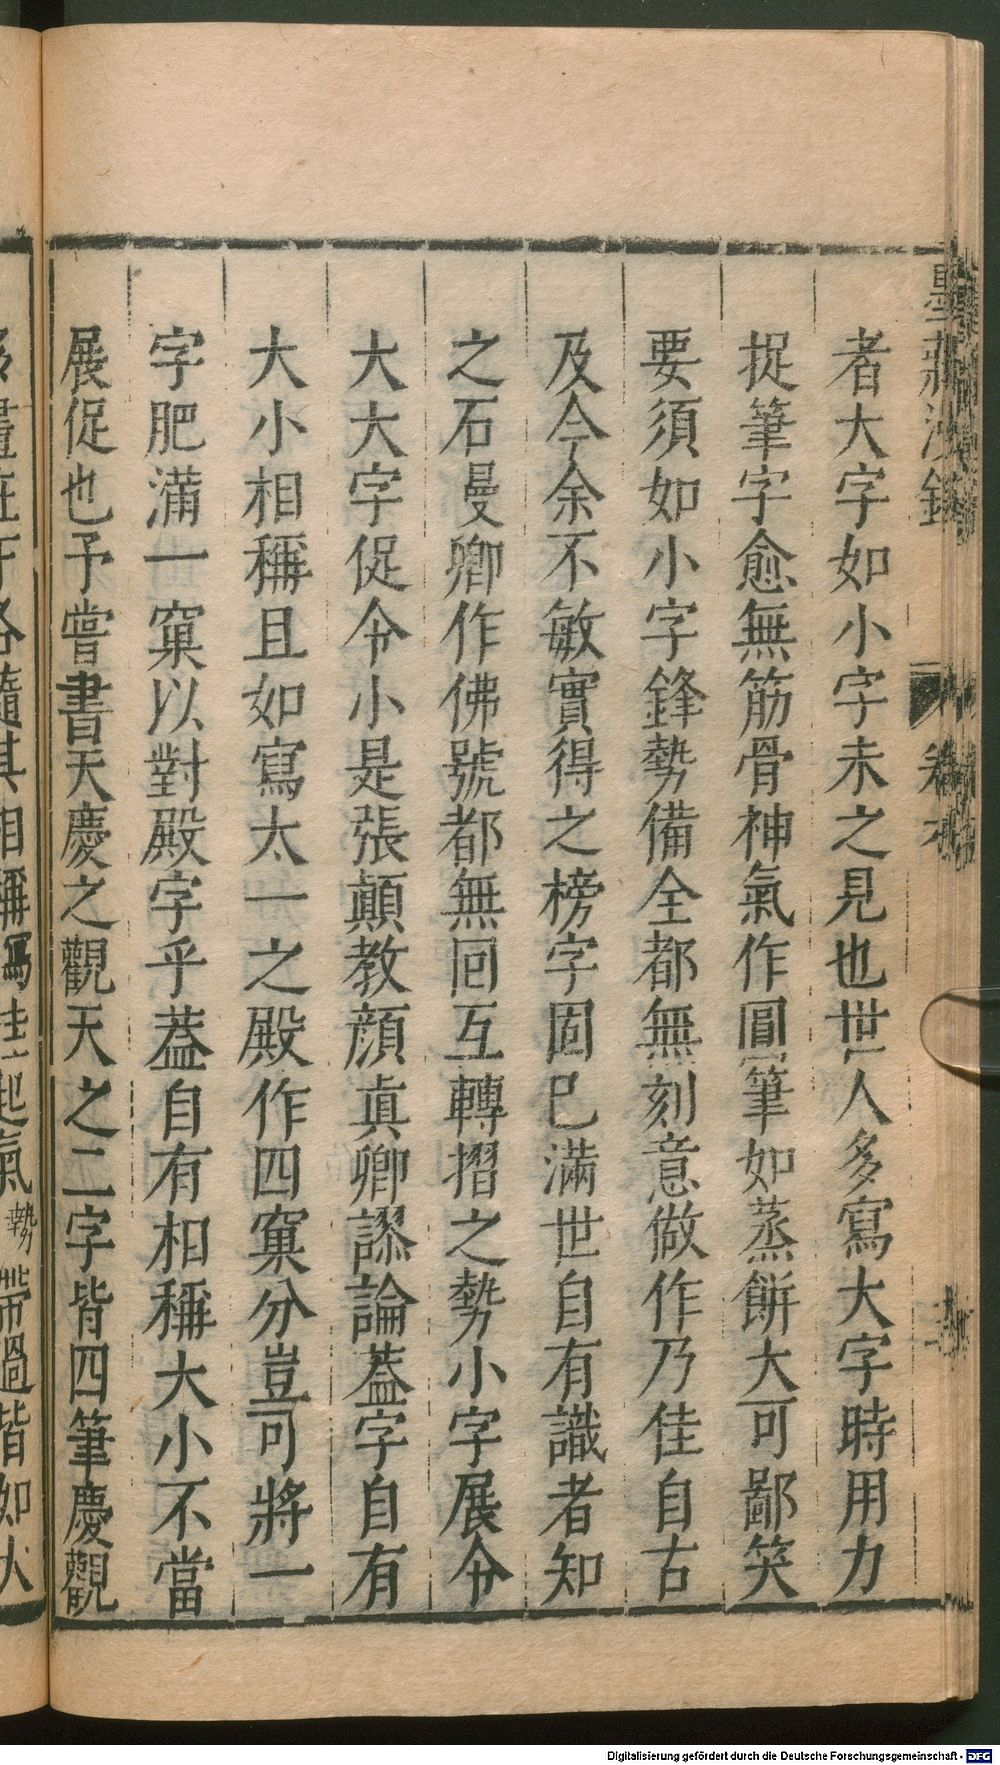 者大字如小字未之見也世人多寫大字時用力
捉筆字愈無筋骨神氣作圓筆如蒸餅大可鄙笑
要須如小字鋒勢備全都無刻意做作乃佳自古
及今余不敏實得之榜字固巳滿世自有識者知
之石曼卿作佛號都無囘互轉摺之勢小字展令
大大字促令小是張顛教顔眞卿謬論蓋字自有
大小相稱且如寫太一之殿作四窠分豈可將一
字肥滿一窠以對殿字乎蓋自有相稱大小不當
展促也予嘗書天慶之觀天之二字皆四筆慶觀
各隨其相稱寫挂起氣勢帶過皆如大
Digitalisierung gefördert durch die Deutsche Forschungsgemeinschaft - DFG